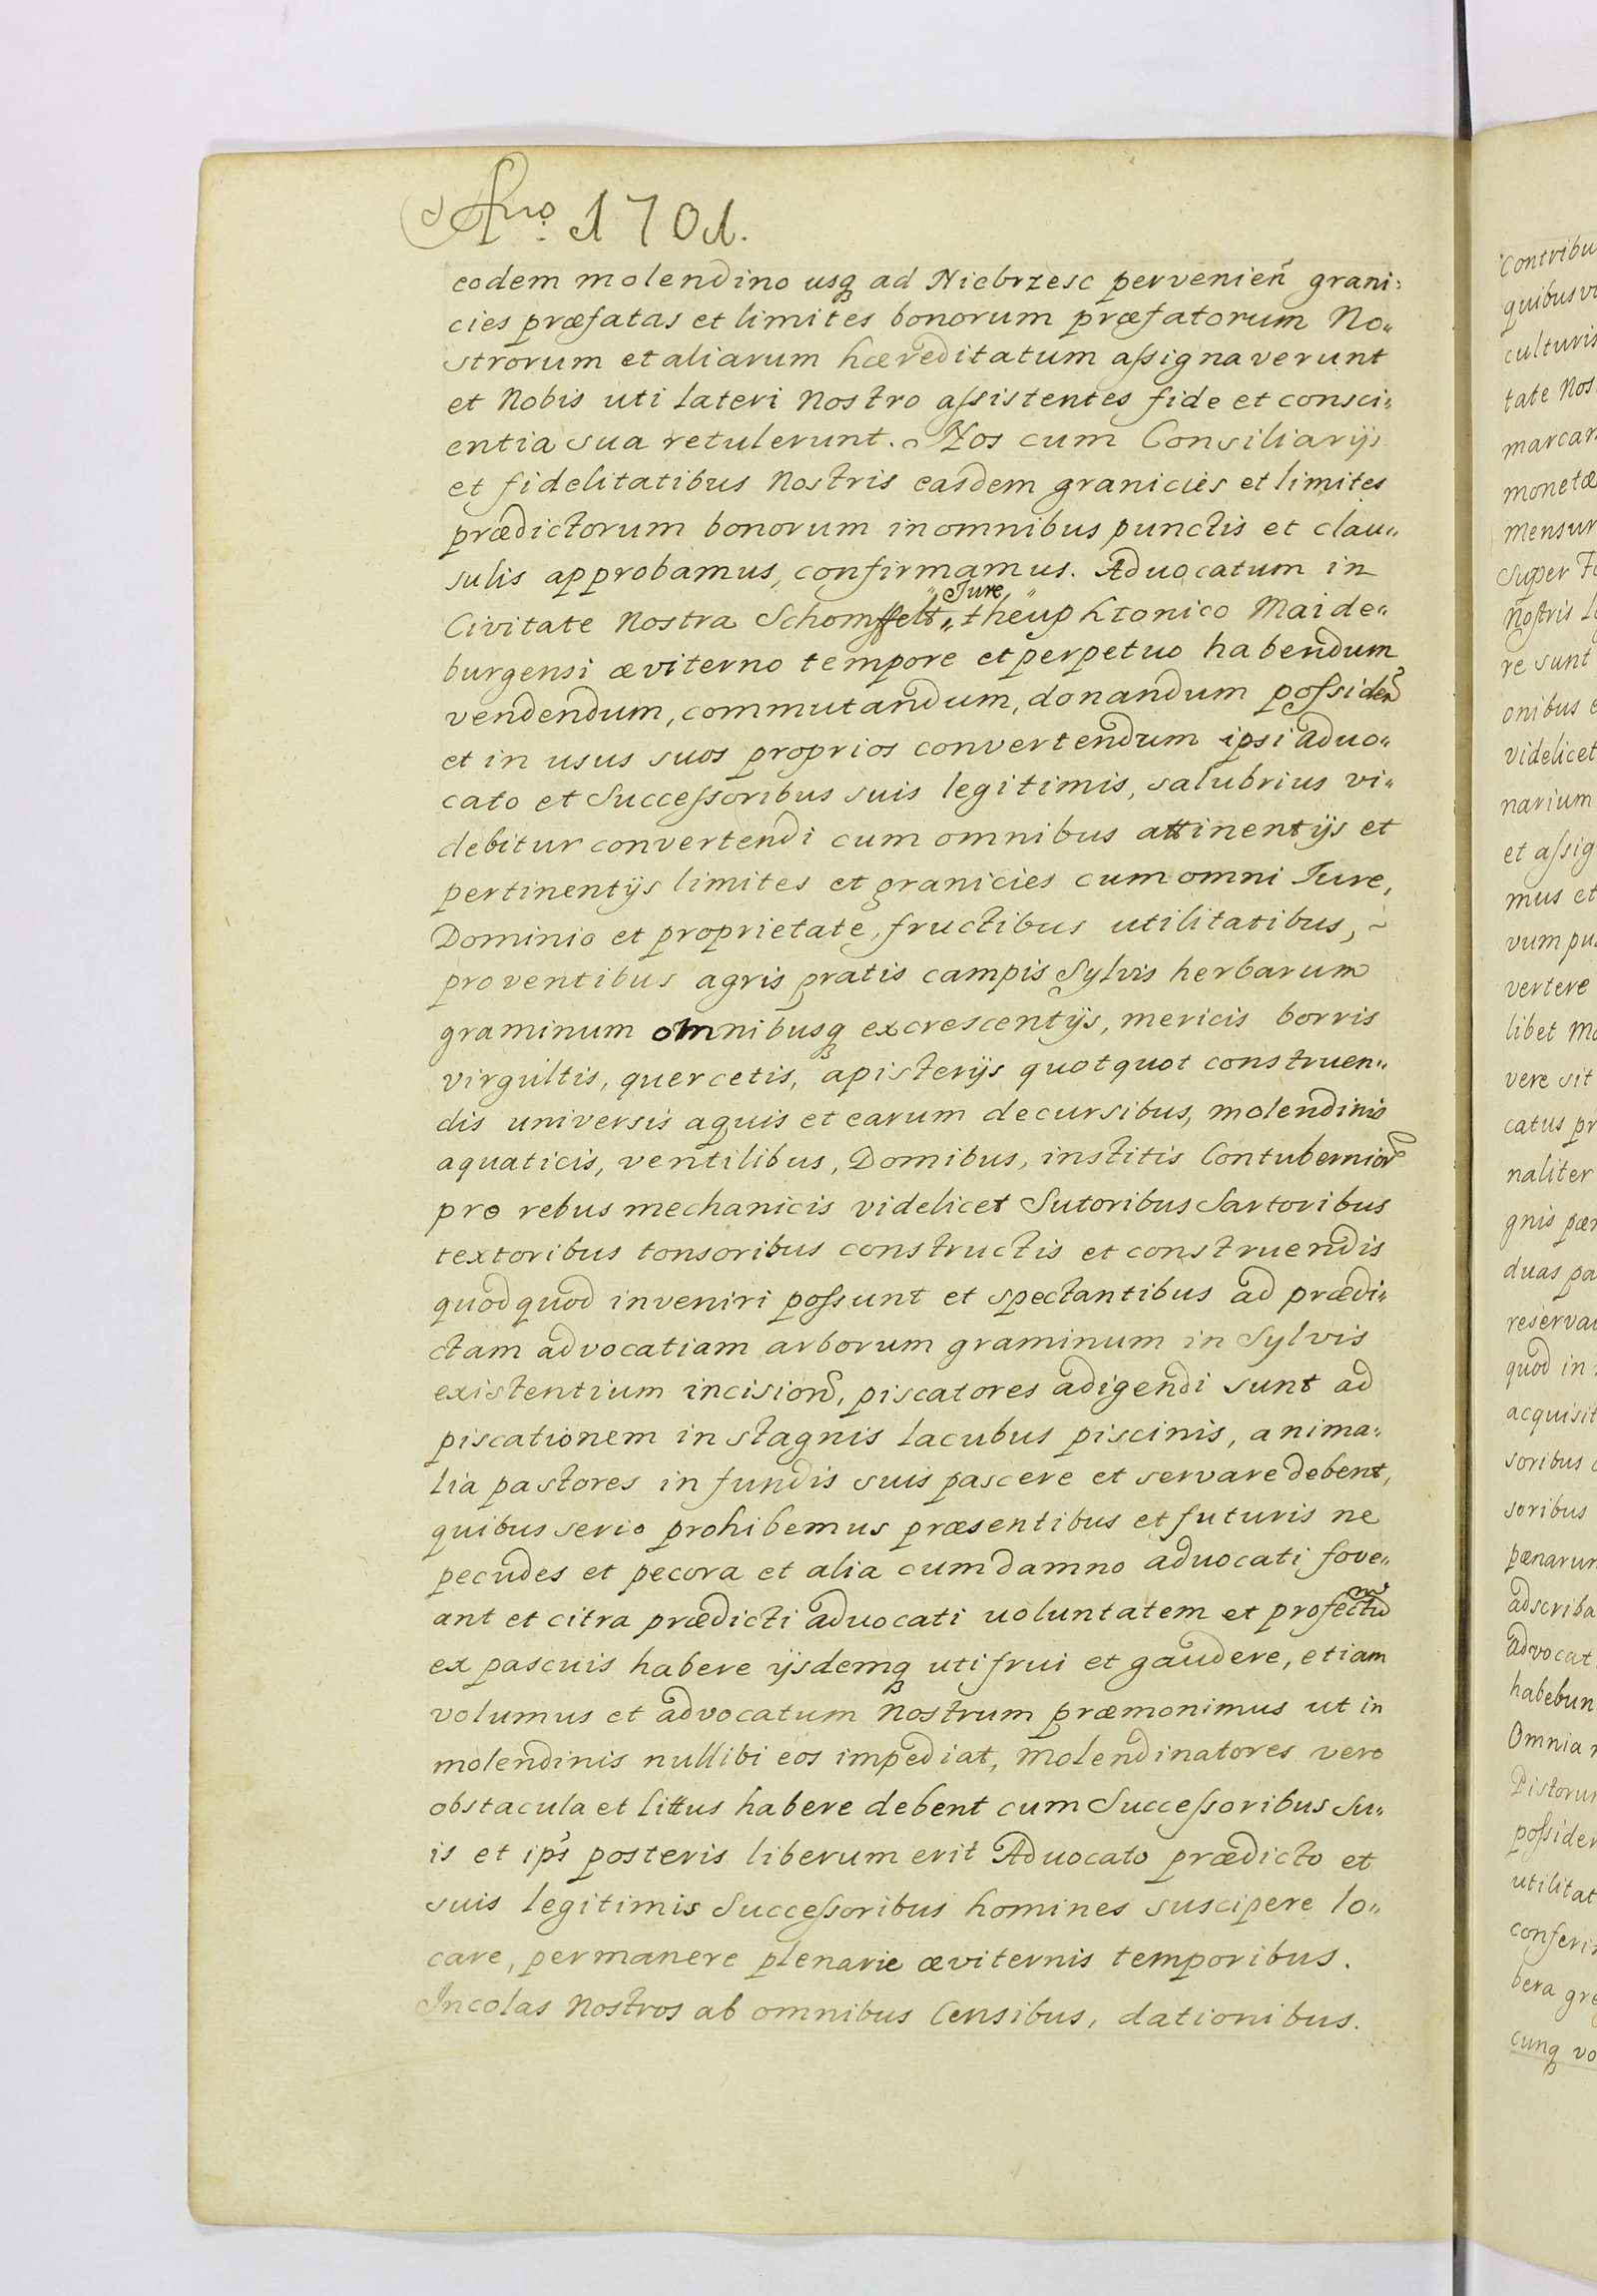 Año. 1701.
eodem molendino usq ad Niebrzesc pervenien̄ grani:
cies præfatas et limites bonorum præfatorum No„
strorum et aliarum hæreditatum aſsignaverunt
et Nobis uti lateri Nostro aſsistentes fide et consci„
entia sua retulerunt. Nos cum Consiliarijs
et fidelitatibus Nostris easdem granicies et limites
prædictorum bonorum in omnibus punctis et clau„
sulis approbamus, confirmamus. Aduocatum in
Jure
Civitate Nostra Schomffelt „theuphtonico Maide„
burgensi æviterno tempore et perpetuo habendum
vendendum, commutandum, donandum poſsiden̄
et in usus suos proprios convertendum ipsi aduo„
cato et Succeſsoribus suis legitimis, salubrius vi„
debitur convertendi cum omnibus attinentijs et
pertinentijs limites et granicies cum omni Iure,
Dominio et proprietate, fructibus utilitatibus, ~
proventibus agris pratis campis Sylvis herbarum
graminum omnibusq excrescentijs, mericis borris
virgultis, quercetis, apisterijs quotquot construen„
dis universis aquis et earum decursibus, molendinis
aquaticis, ventilibus, Domibus, institis Contubernior̄
pro rebus mechanicis videlicet Sutoribus Sartoribus
textoribus tonsoribus constructis et construendis
quodquod inveniri poſsunt et spectantibus ad prædi„
ctam advocatiam arborum graminum in Sylvis
existentium incision̄, piscatores adigendi sunt ad
piscationem in stagnis lacubus piscinis, anima„
lia pastores in fundis suis pascere et servare debent,
quibus serio prohibemus præsentibus et futuris ne
pecudes et pecora et alia cum damno aduocati fove„
ant et citra prædicti aduocati uoluntatem et profectū
ex pascuis habere ijsdemq uti frui et gaudere, etiam
volumus et advocatum Nostrum præmonimus ut in
molendinis nullibi eos impediat, molendinatores vero
obstacula et littus habere debent cum Succeſsoribus su„
is et ip̄s posteris liberum erit Aduocato prædicto et
suis legitimis Succeſsoribus homines suscipere lo„
care, permanere plenarie æviternis temporibus.
Incolas Nostros ab omnibus Censibus, dationibus.
Contribu
quibus vi
culturis
tate Nos
marcar
monetæ
mensur
Super
Nostris
re sunt
onibus
videlicet
narium
et aſsig
mus et
vum pu
vertere
libet
vere sit
catus pr
naliter
gnis pœn
duas pa
reserva
quod in
acquisit
soribus
soribus
pœnarum
adscriba
Advocat
habebun
Omnia
Pistorum
poſsiden
utilitat
conferi
bera gre
cunq vo